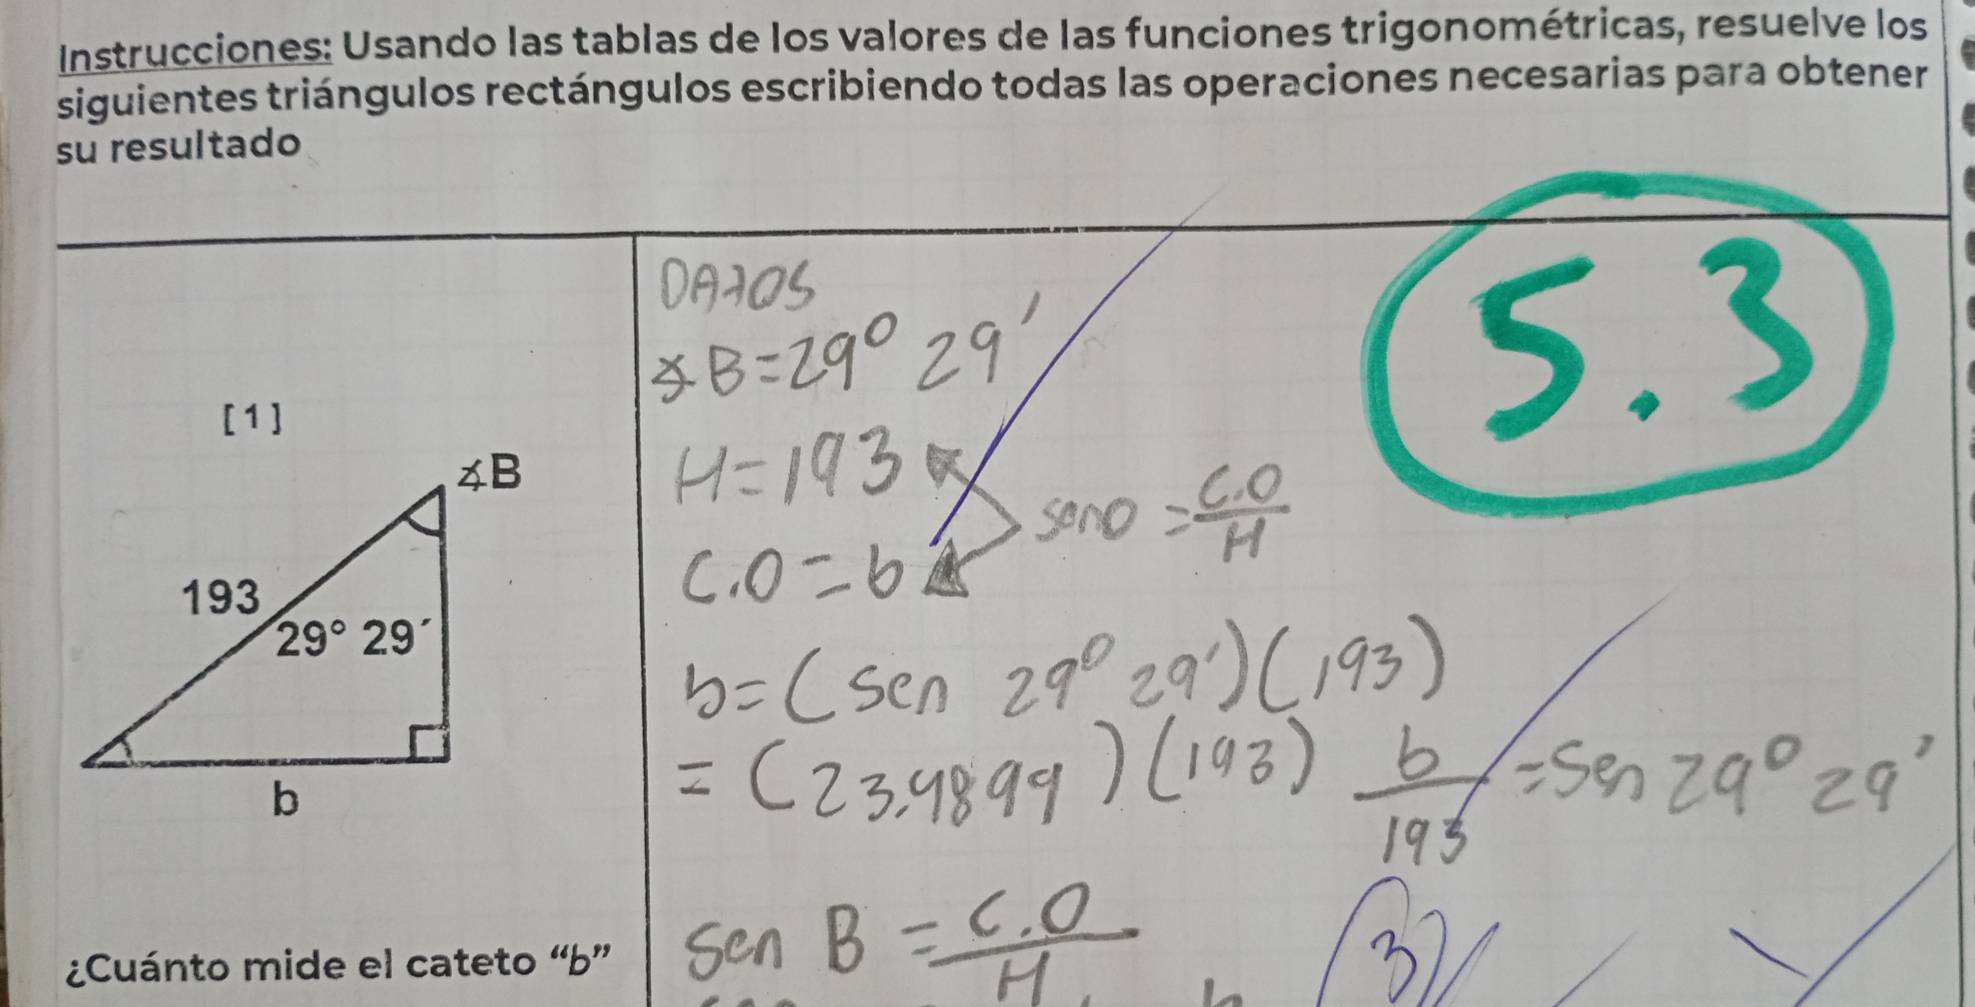 Instrucciones: Usando las tablas de los valores de las funciones trigonométricas, resuelve los
siguientes triángulos rectángulos escribiendo todas las operaciones necesarias para obtener
su resultado
5.3
[1]
∡B
193
29° 29´
b
¿Cuánto mide el cateto “b”
DATOS
∡B=29° 29'
H=193
C.O=b
seno = C.O/H
b=(sen 29° 29')(193)
=(23.4899)(193)
b/193 = Sen 29° 29'
Sen B = C.O/H
3